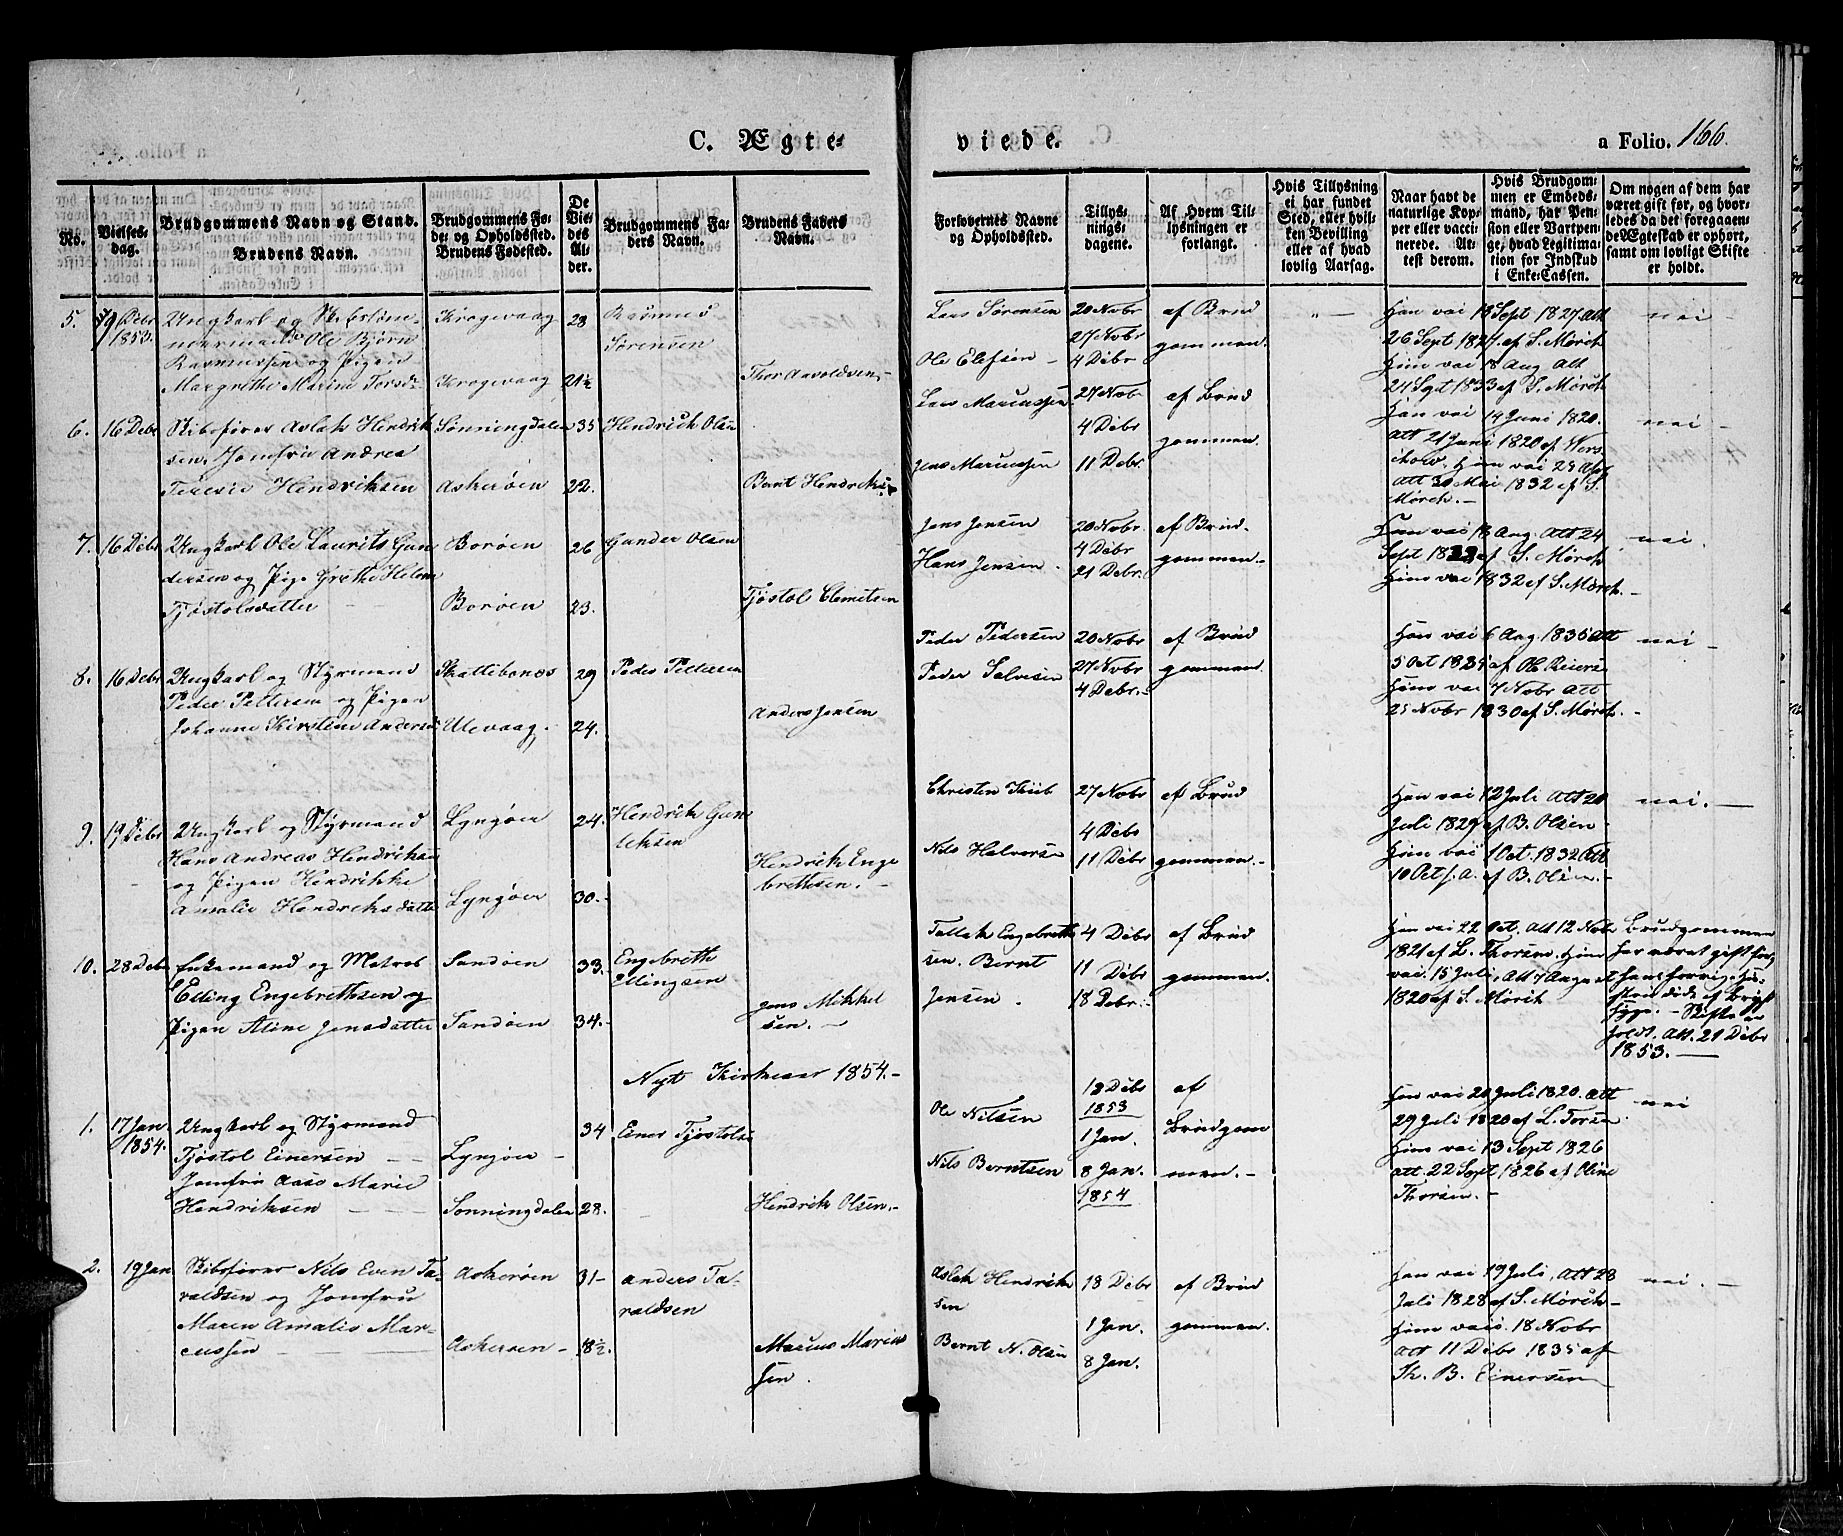 C. Ægte-
viede.
a Folio. 166.
No.
Vielses-
dag.
Brudgommens Navn og Stand.
Brudens Navn.
Brudgommens Fø-
de- og Opholdssted.
Brudens Fødested.
De
Vie-
des
Al-
der.
Brudgommens Fa-
ders Navn.
Brudens Faders
Navn.
Forlovernes Navne
og Opholdssted.
Tillys-
nings-
dagene.
Af Hvem Til-
lysningen er
forlangt.
Hvis Tillysning
ei har fundet
Sted, eller hvil-
ken Bevilling
eller af hvad
lovlig Aarsag.
Naar havt de
naturlige Kop-
per eller vacci-
nerede. At-
test derom.
Hvis Brudgom-
men er Embeds-
mand, har Pen-
sion eller Vartpen-
ge, hvad Legitima-
tion for Indskud
i Enke-Cassen.
Om nogen af dem har
været gift før, og hvor-
ledes da det foregaaen-
de Ægteskab er ophørt,
samt om lovligt Skifte
er holdt.
5.
9 Debr
1853.
Ungkarl og
Ole Bjørn
Rasmussen og Pigen
Margrethe Marine Torsd:
Krogevaag
Krogevaag
28
21½
Rasmus
Sørensen
Thor Aavoldsen
Lars Sørensen
Ole Elefsen
20 Nobr
27 Nobr
4 Debr
af Brud
gommen.
Han vai 18 Sept 1827 Att
26 Sept 1827 af S. Mørch
Hun vai 18 Aug Att
24 Sept 1833 af S. Mørch
nei
6.
16 Debr
Skibsfører Aslak Hendrik
sen, Jomfru Andrea
Teresie Hendriksen
Sønningdalen
Askerøen
35
22.
Hendrich Olsen
Bent Hendriks
Lars Marcussen
Jens Marcussen
27 Nobr
4 Debr
11 Debr
af Brud
gommen.
Han vai 14 Juni 1820.
Att 21 Juni 1820 af Wers
chow. Hun vai 29
Att 30 Mai 1832 af S.
Mørch.
nei
7.
16 Debr
Ungkarl Ole Laurits Gun
dersen og Pige Grethe Helene
Tjøstolsdatter
Borøen
Borøen
26
23.
Gunder Olsen
Tjøstol Clemetsen
Jens Jensen
Hans Jensen
20 Nobr
4 Debr
21 Debr
af Brud-
gommen.
Han vai 18 Aug. Att 24
Sept af S. Mørch
Hun vai 1832 af S. Mørch.
nei.
8.
16 Debr
Ungkarl og Styrmand
Peder Pettersen og Pigen
Johanne Kirstine Anders
Skottebonæs
Ulevaag
29
24.
Peder Pettersen
Anders Jensen
Peder Pedersen
Peder Salvesen
20 Nobr
27 Nobr
4 Debr.
af Brud
gommen.
Han vai 6 Aug. 1835 Att
5 Oct af Ol. Reiers
Hun vai 7 Nobr Att
25 Nobr 1830 af S. Mørch.
nei
9.
19 Debr
Ungkarl og Styrmand
Hans Andreas Hendriksen
og Pigen Hendrikke
Amalie Hendriksdatte
Lyngøer
Lyngøer
24.
30.
Hendrik Gun
leksen
Hendrik Enge
brethsen.
Christen Kiib
Nils Halversen
27 Nobr
4 Debr
11 Debr
af Brud
gommen.
Han vai 12 Juli Att 20
Juli 1829 af B. Olsen
Hun vai 1 Oct. 1832 Att
10 Oct s.A. af B. Olsen.
nei.
10.
28 Debr
Enkemand og Matros
Elling Engebrethsen og
Pigen Aline Jensdatter
Sandøen
Sandøen
33.
34.
Engebreth
Ellingsen
Jens Mikkel
sen.
Tallak Engebreth
sen. Bernt
Jensen.
4 Debr
11 Debr
18 Debr.
af Brud
gommen.
Han vai 22 Oct. Att 12 Nobr
1821 af L. Thorsen. Hun
vai. 15 Juli, Att 7 August
1820 af S. Mørch
Brudgommen
har været gift før,
hans forrige Hu-
stru døde af Bryst
syge. - Skifte er
holdt. Att. 21 Debr
1853.
Nyt Kirkeaar 1854.
1.
17 Jan
1854.
Ungkarl og Styrmand
Tjøstol Einersen
Jomfru Aase Marie
Hendriksen
Lyngøer
Sønningdalen
34
28.
Einer Tjøstols
Hendrik Olsen.
Ole Nilsen
Nils Berntsen
18 Debr
1853
1 Jan.
8 Jan.
1854
af
Brudgom
men.
Han vai 20 Juli 1820. Att
29 Juli 1820 af L. Torsen
Hun vai 13 Sept 1826
Att 22 Sept 1826 af Oline
Thorsen.
nei
2.
19 Jan
Skibsfører Nils Even Ta-
raldsen og Jomfru
Maren Amalie Mar-
cussen
Askerøen
Askerøen
31
18½.
Anders Ta-
raldsen
Marcus Marcus
sen.
Aslak Hendrik
sen
Bernt N. Olsen
18 Debr
1 Jan.
8 Jan.
af Brud
gommen.
Han vai 19 Juli, Att 28
Juli 1828 af S. Mørch
Hun vai 18 Nobr
Att 11 Debr 1835 af
Th. B. Einersen
nei.